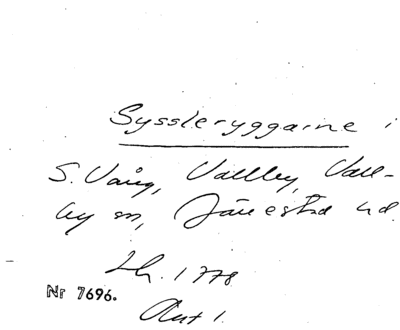 Syssleryggarne i
S. Vång, Vallby, Vall-
by sn, Järrestad hd.
Lh. 1778
Nr 7696.
Akt 1.